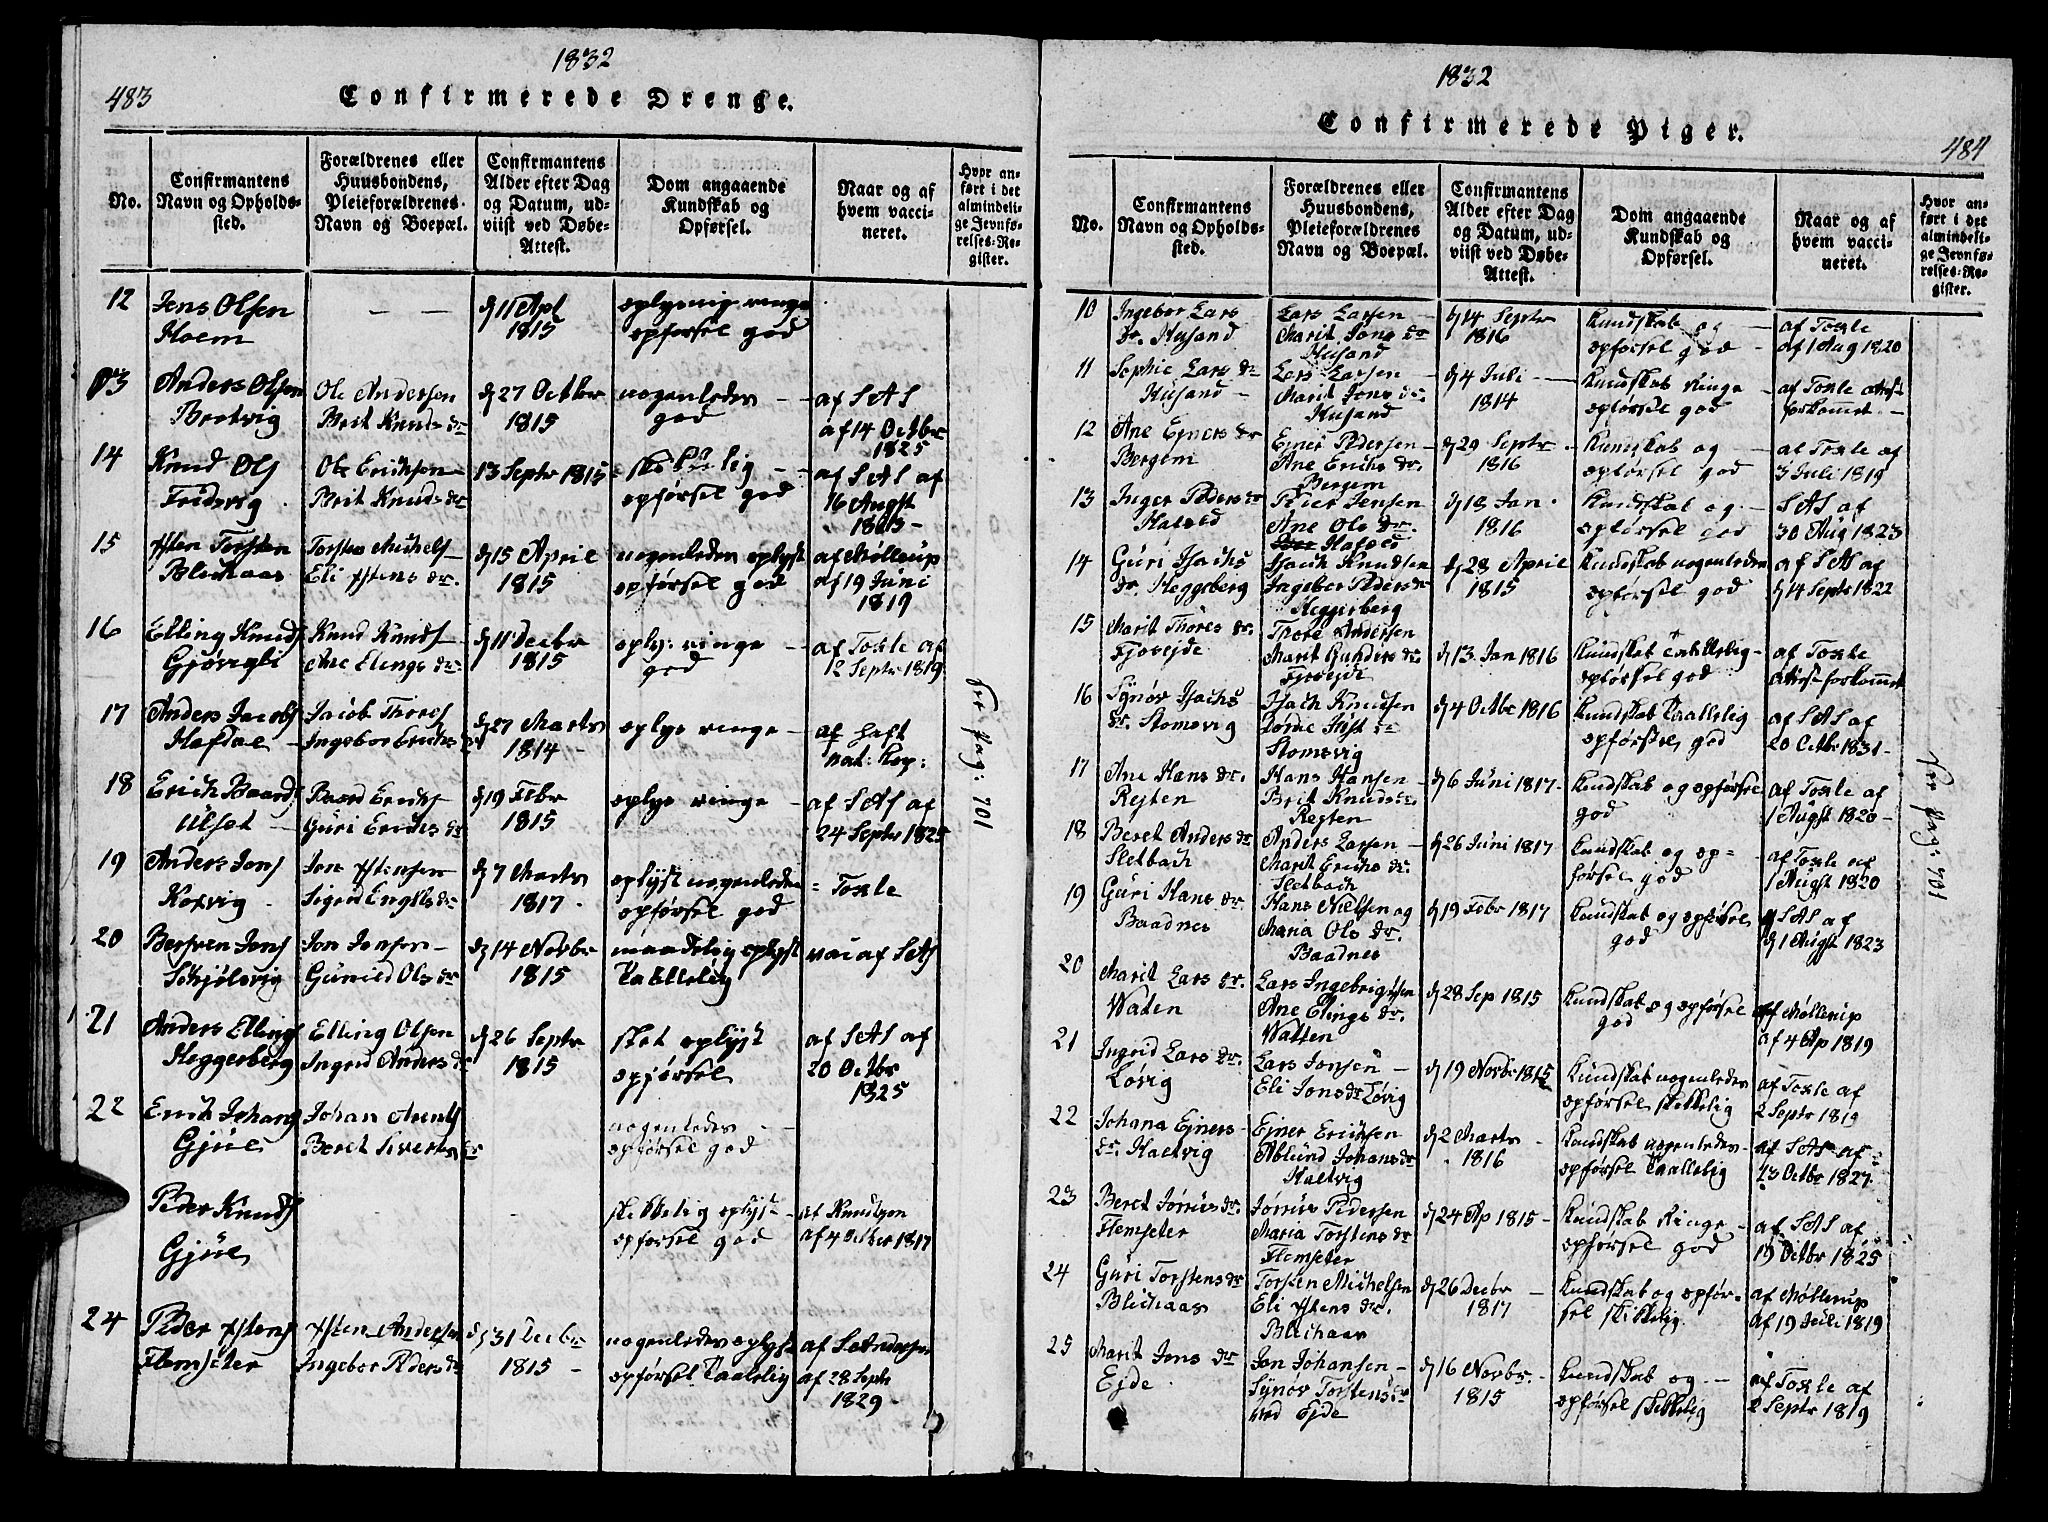 1832
483
Confirmerede Drenge.
No.
Confirmantens
Navn og Opholds-
sted.
Forældrenes eller
Huusbondens,
Pleieforældrenes
Navn og Boepæl.
Confirmantens
Alder efter Dag
og Datum, ud-
viist ved Døbe-
Attest.
Dom angaaende
Kundskab og
Opførsel.
Naar og af
hvem vacci-
neret.
Hvor an-
ført i det
almindeli-
ge Jevnfø-
relses-Re-
gister.
12
Jens Olsen
Hoem
— —
d 11 Apl
1815
oplysnig ringe
opførsel god
13
Anders Olsen
Bertvig
Ole Andersen
Brit Knuds dr
d 27 Octbr
1815
nogenledes
god
af S A S
af 14 Octbr
1825
14
Knud Ols
Fridsvig
Ole Eriksen
Brit Knuds dr
13 Septr 1815
opførsel god
af S A S af
16 Augst
15
Isten Torsten
Blichaas
Torsten Michels
Eli Istens dr.
d 15 April
1815
nogenledes oplyst
opførsel god
af Møllerup
af 19 Juni
1819
16
Elling Knuds
Knud Knuds
Ane Elings dr
d 11 Decbr
1815
oply: ringe
god
af Toxle af
12 Septr 1819
17
Anders Jacobs
Hafdae
Jacob Thores
Ingebor Erichs dr
d 27 Marts
1814
oplys ringe
af haft
nat: Kop:
18
Erich Baards
Ulset
Baard Erichs
Guri Erichs dr
d 19 Febr
1815
oplys ringe
af S A S af
24 Septr 1825
19
Anders Jons
Korsvig
Jon Istensen
Sigrid Engels dr
d 7 Marts
1817
oplyst nogenledes
opførsel god
= Toxle
20
Bersven Jons
Schjølsvig
Jon Jonsen
Gunild Ols dr
d 14 Novbr
1815
maadelig oplyst
taallelig
vac af S A S
21
Anders Ellings
Heggerberg
Elling Olsen
Ingrid Anders dr
d 26 Septr
1815
slet oplyst
opførsel
af S A S af
20 Octbr
1825
22
Erich Johans
Gjul
Johan Arents
Beret Siverts dr
nogenledes
opførsel god
Peder Knuds
Gjul
skikkelig oplyst
opførsel god
af Knudson
af 4 October 1817
24
Peder Istens
Flemseter
Isten Andersen
Ingebor Peders dr
d 31 Decbr
1815
nogenledes oplyst
opførsel taalelig
af S Andersen
af 28 Septr
1829
see pag: 701
1832
484
Confirmerede Piger.
No.
Confirmantens
Navn og Opholds-
sted.
Forældrenes eller
Huusbondens,
Pleieforældrenes
Navn og Boepæl.
Confirmantens
Alder efter Dag
og Datum, ud-
viist ved Døbe-
Attest.
Dom angaaende
Kundskab og
Opførsel.
Naar og af
hvem vacci-
neret.
Hvor an-
ført i det
almindeli-
ge Jevnfø-
relses-Re-
gister.
10
Ingebor Lars
dr. Husand
Lars Larsen
Marit Jons dr
Husand
d 14 Septr
1816
Kundskab og
opførsel god
af Toxle
af 1 Aug 1820
11
Sophie Lars dr
Husand
Lars Larsen
Marit Jons dr.
Husand
d 4 Juli
1814
Kundskab Ringe
opførsel god
af Toxle Attest
forkommet
12
Ane Ejners dr
Bergem
Ejner Pedersen
Ane Erichs dr.
Bergem
d 29 Septr
1816
Kundskab og
opførsel god
af Toxle af
3 Juli 1819
13
Inger Peders dr
Halsed
Peder Jensen
Ane Ols dr.
Hafsed
d 18 Jan
1816
Kundskab og
opførsel god
S A S af
30 Aug 1823
14
Guri Isachs
dr. Heggeberg
Isach Knudsen
Ingebor Peders dr
Heggerberg
d 28 April
1815
Kundskab nogenledes
opførsel god
af S A S af
d 14 Septr 1822
15
Marit Thores dr.
Fjorejde
Thore Andersen
Marit Gunders dr
Fjorejde
d 13 Jan 1816
Kundskab taallelig
opførsel god
af Toxle
Attest forkommet
16
Synøv Isachs
dr. Stomsvig
Isach Knudsen
Stomsvig
d 4 Octbr 1816
Kundskab taallelig
opførsel god
af S A S af
20 Octbr 1831
17
Ane Hans dr.
Rejten
Hans Hansen
Brit Knuds dr
Rejten
d 6 Juni 1817
Kundskab og opførsel
god
af Toxle af
1 Augst 1820
18
Beret Anders dr
Sletbach
Anders Larsen
Marit Erichs dr.
Sletbach
d 26 Juni 1817
Kundskab og op=
førsel god
af Toxle af
1 Augst 1820
19
Guri Hans dr.
Baadnes
Hans Nielsen og
Maria Ols dr.
Baadnes
d 19 Febr 1817
Kundskab og opførsel
god
S A S af
d 1 Augst 1823
20
Marit Lars dr.
Waden
Lars Ingebrigtsen
Ane Elings dr.
Watten
d 28 Sep 1815
Kundskab og opførsel
god
af Møllerup
af 4 Ap 1819
21
Ingrid Lars dr.
Løvig
Lars Jonsen
Eli Jons dr Løvig
d 19 Novbr 1815
Kundskab nogenledes
opførsel skikkelig
af Toxle af
2 Septr 1819
22
Johana Ejners
dr. Haltvig
Ejner Erichsen
Ablund Johans dr
Haltvig
d 2 Marts
1816
Kundskab nogenledes
opførsel taallelig
af S A S af
23 Octbr 1827
23
Beret Jørrus dr.
Flemseter
Jørrus Pedersen
Maria Torstens dr
Flemseter
d 24 Ap 1815
Kundskab Ringe
opførsel god
af S A S af
19 Octbr 1825
24
Guri Torstens dr
Blichaas
Torsten Michelsen
Eli Istens dr.
Blichaas
d 26 Decbr
1817
Kundskab og opfør-
sel skikkelig
af Møllerup
af 19 Juli 1819
25
Marit Jons dr
Ejde
Jon Johansen
Synøv Torstens dr
ved Ejde
d 16 Novbr.
1815
Kundskab og
opførsel skikkelig
af Toxle af
2 Septr 1819
see pag: 701